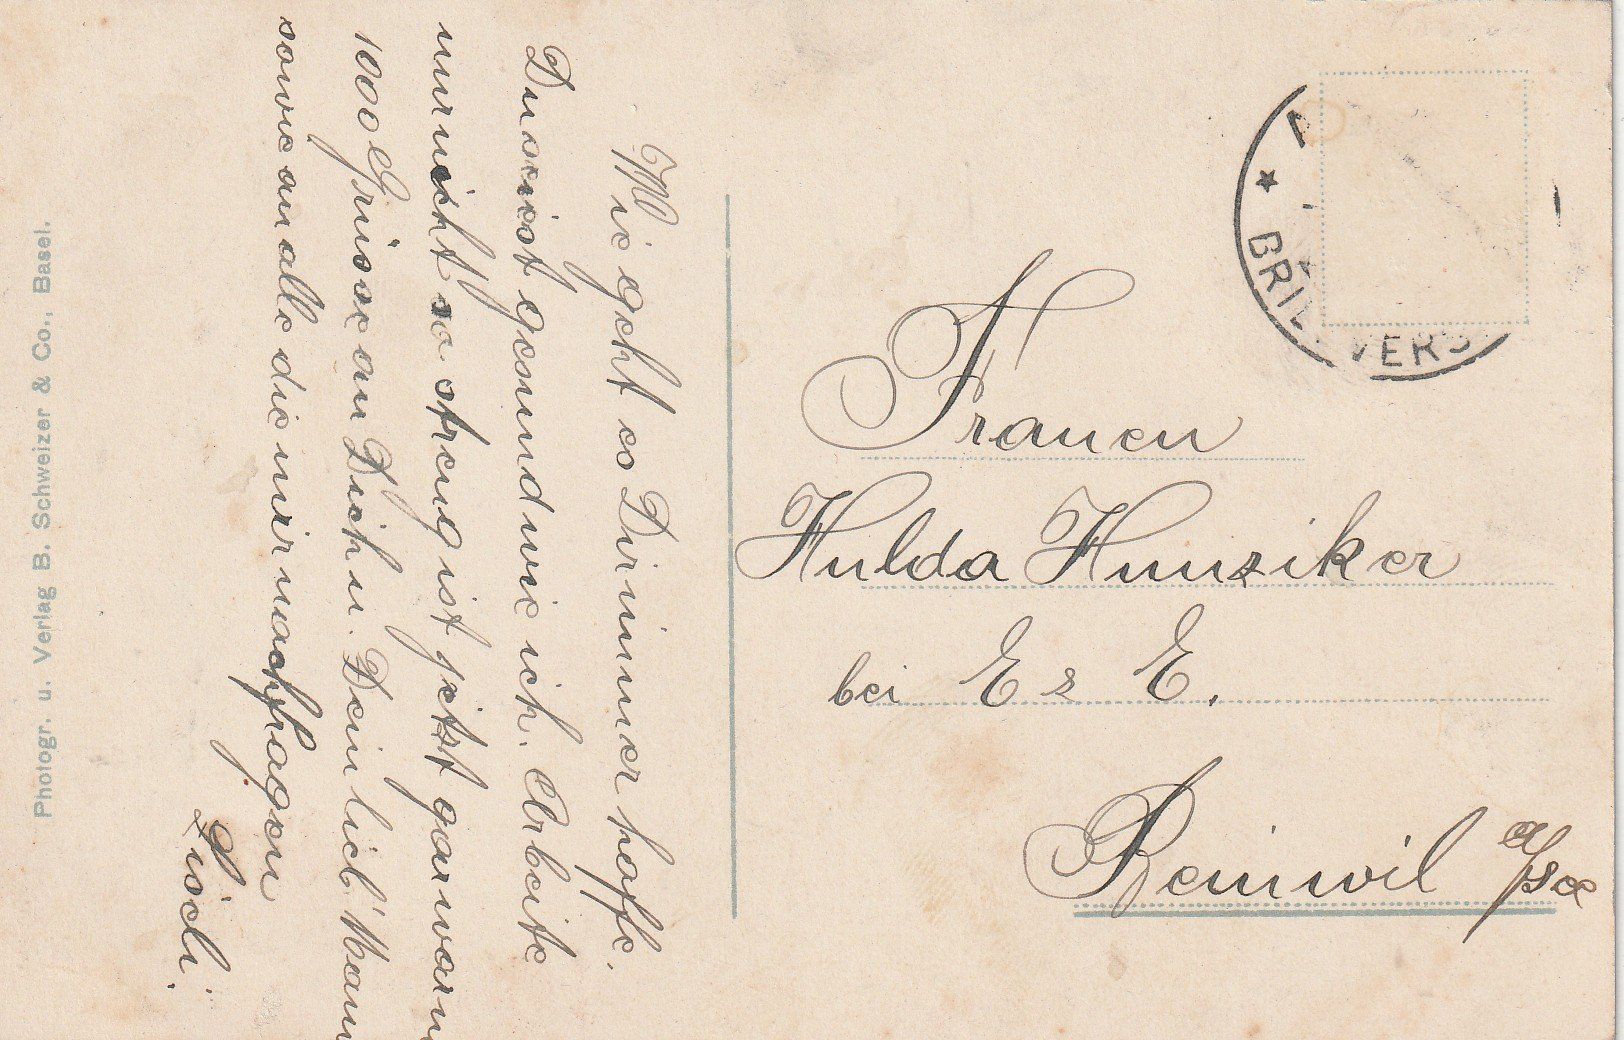 Wie geht es Dir immer hoffe.
Du seiest gesund wie ich. Arbeite
nur nicht so streng ist jetzt gar warm
1000 Grüsse an Dich u. Dein lieb' Mann
sowie an alle die mir nachfragen
Liseli.
Frauen
Hulda Hunziker
bei E. E.
Reinwil a/See
BRI VERS
Photogr. u. Verlag B. Schweizer & Co., Basel.